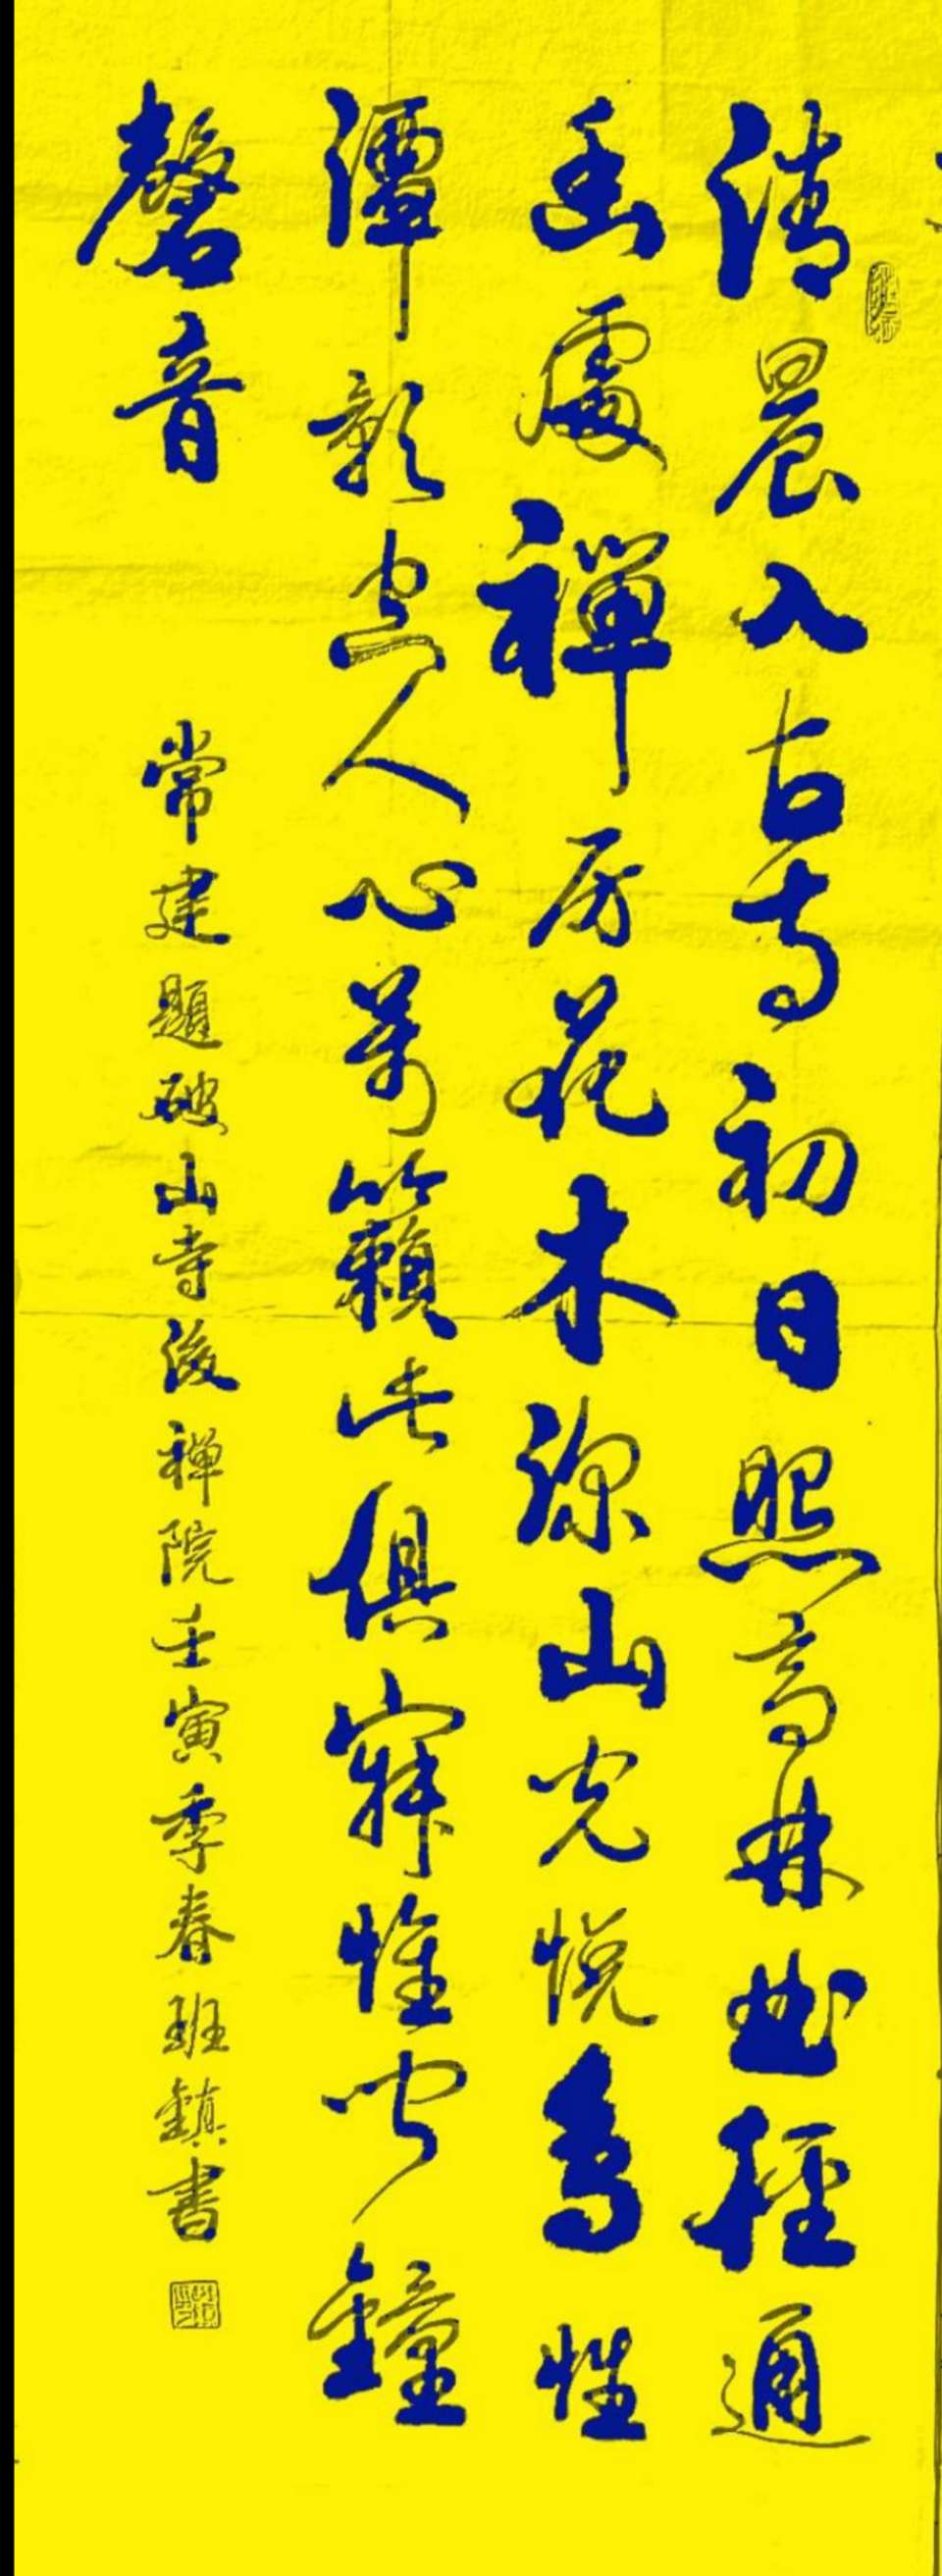 清晨入古寺初日照高林曲徑通
幽處禪房花木深山光悅鳥性
潭影空人心萬籟此俱寂惟聞鐘
磬音
常建題破山寺後禪院壬寅季春班鎮書